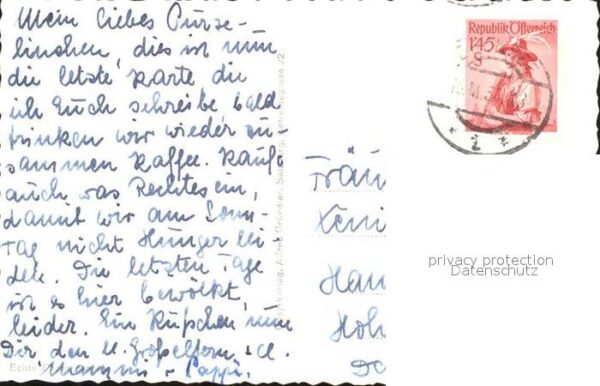 Mein liebes Purze-
linchen, dies ist nun
die letzte Karte die
ich Euch schreibe bald
trinken wir wieder zu-
sammen Kaffee. Kauft
auch was Rechtes ein,
damit wir am Sonn-
tag nicht Hunger lei
den. Die letzten Tage
ist es hier bewölkt,
leider. Ein Küßchen nun
Dir, den u. Großeltern,
Mammi + Pappi.
Republik Österreich
1'45
S
Fräu
Xeni
Han
Hoh
privacy protection
Datenschutz
Echte